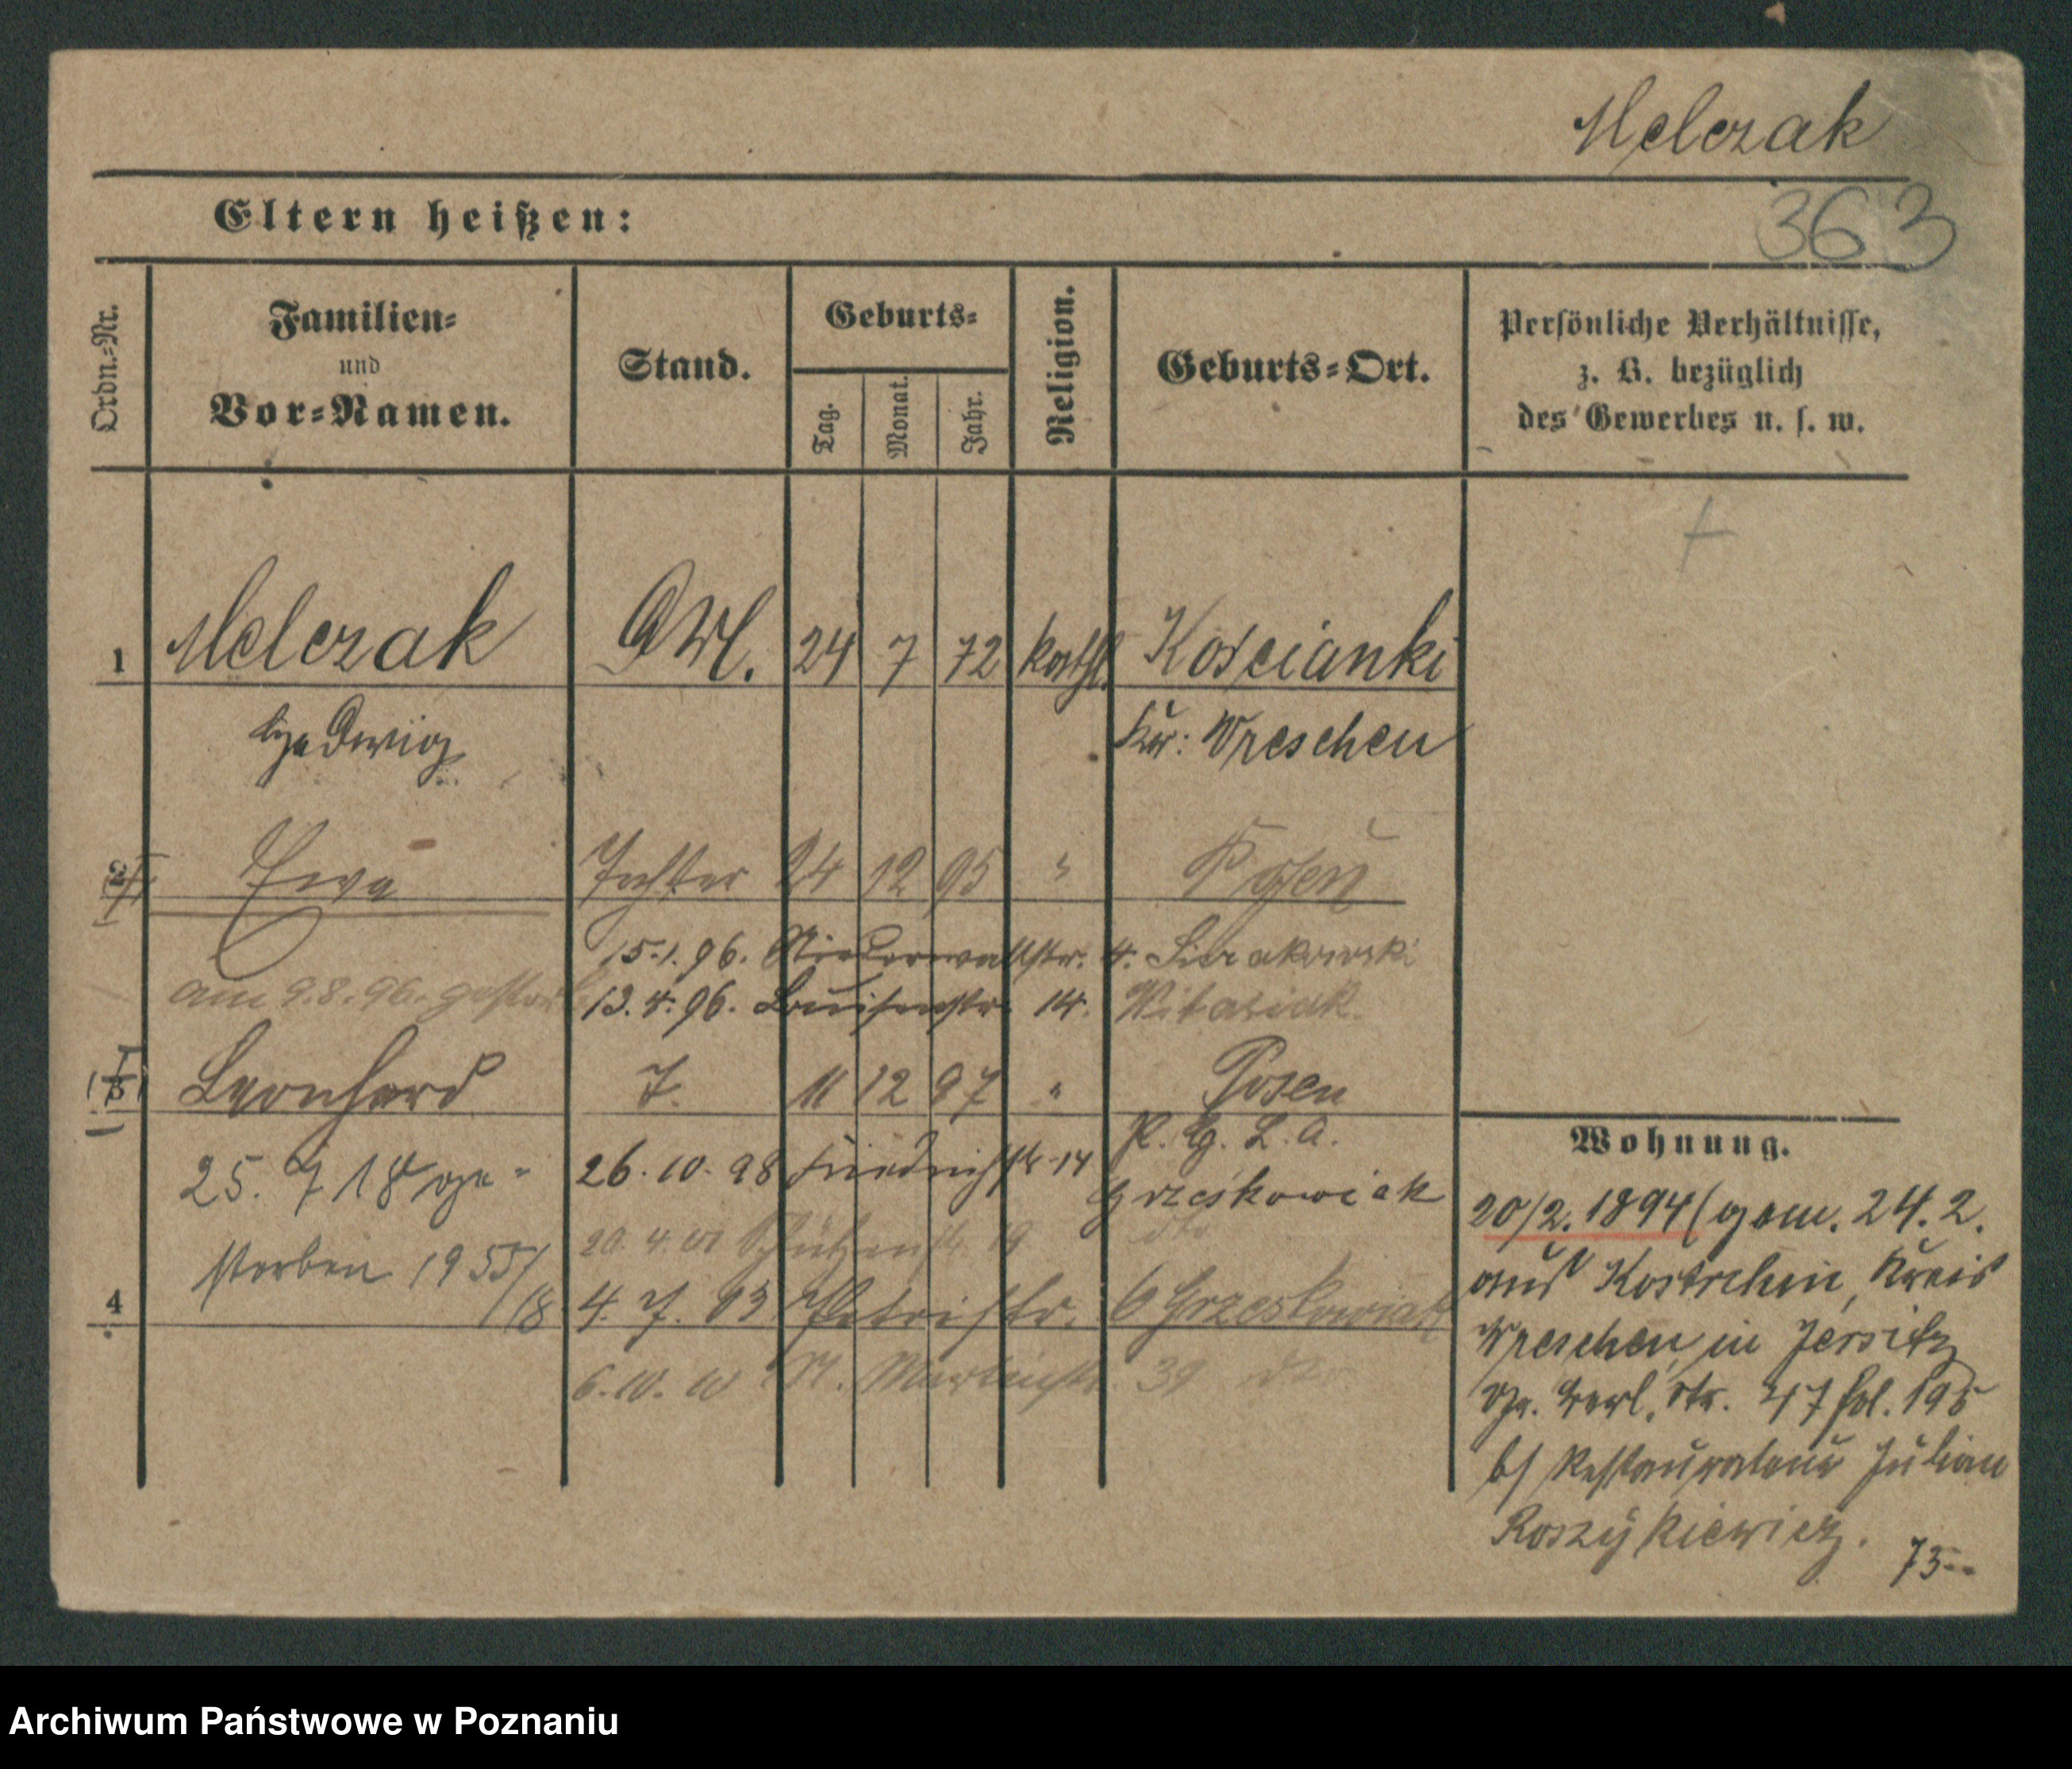 Melczak
363
Eltern heißen:
Ordn.-Nr.
Familien-
und
Vor-Namen.
Stand.
Geburts-
Tag.
Monat.
Jahr.
Religion.
Geburts-Ort.
Persönliche Verhältnisse,
z. B. bezüglich
des Gewerbes u. s. w.
1 Melczak 24 7 72 kathl. Kościanki
Hedwig Kr: Wreschen
2 Ewa Tochter 24 12 95 " Posen
15.1.96. Niederwallstr. 4. Sierakowski
am 9.8.96. gestorb 13.4.96. Louisenstr. 14. Witasiak.
3 Leonhard 11 12 97 " Posen
P. G. L. A.
25. 7 18 ge- 26.10.98 Friedrichstr 14 Grzeskowiak
storben 1955/18 20.4.01 Schützenstr. 19 dto
4 4.7.03 Petristr. 6 Grzeskowiak
6.10.10 St. Martinstr. 39 dto
Wohnung.
20/2. 1894 (gem. 24.2.
aus Kostschin, Kreis
Wreschen in Jersitz
Gr. Berl. Str. 47 fol. 195
b/ Restaurateur Julian
Roszykiewicz.
73
Archiwum Państwowe w Poznaniu